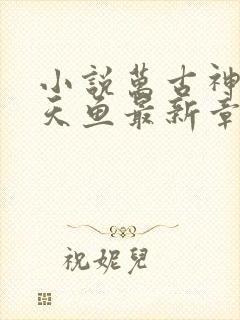 小說萬古神
天魚最新章
祝妮兒